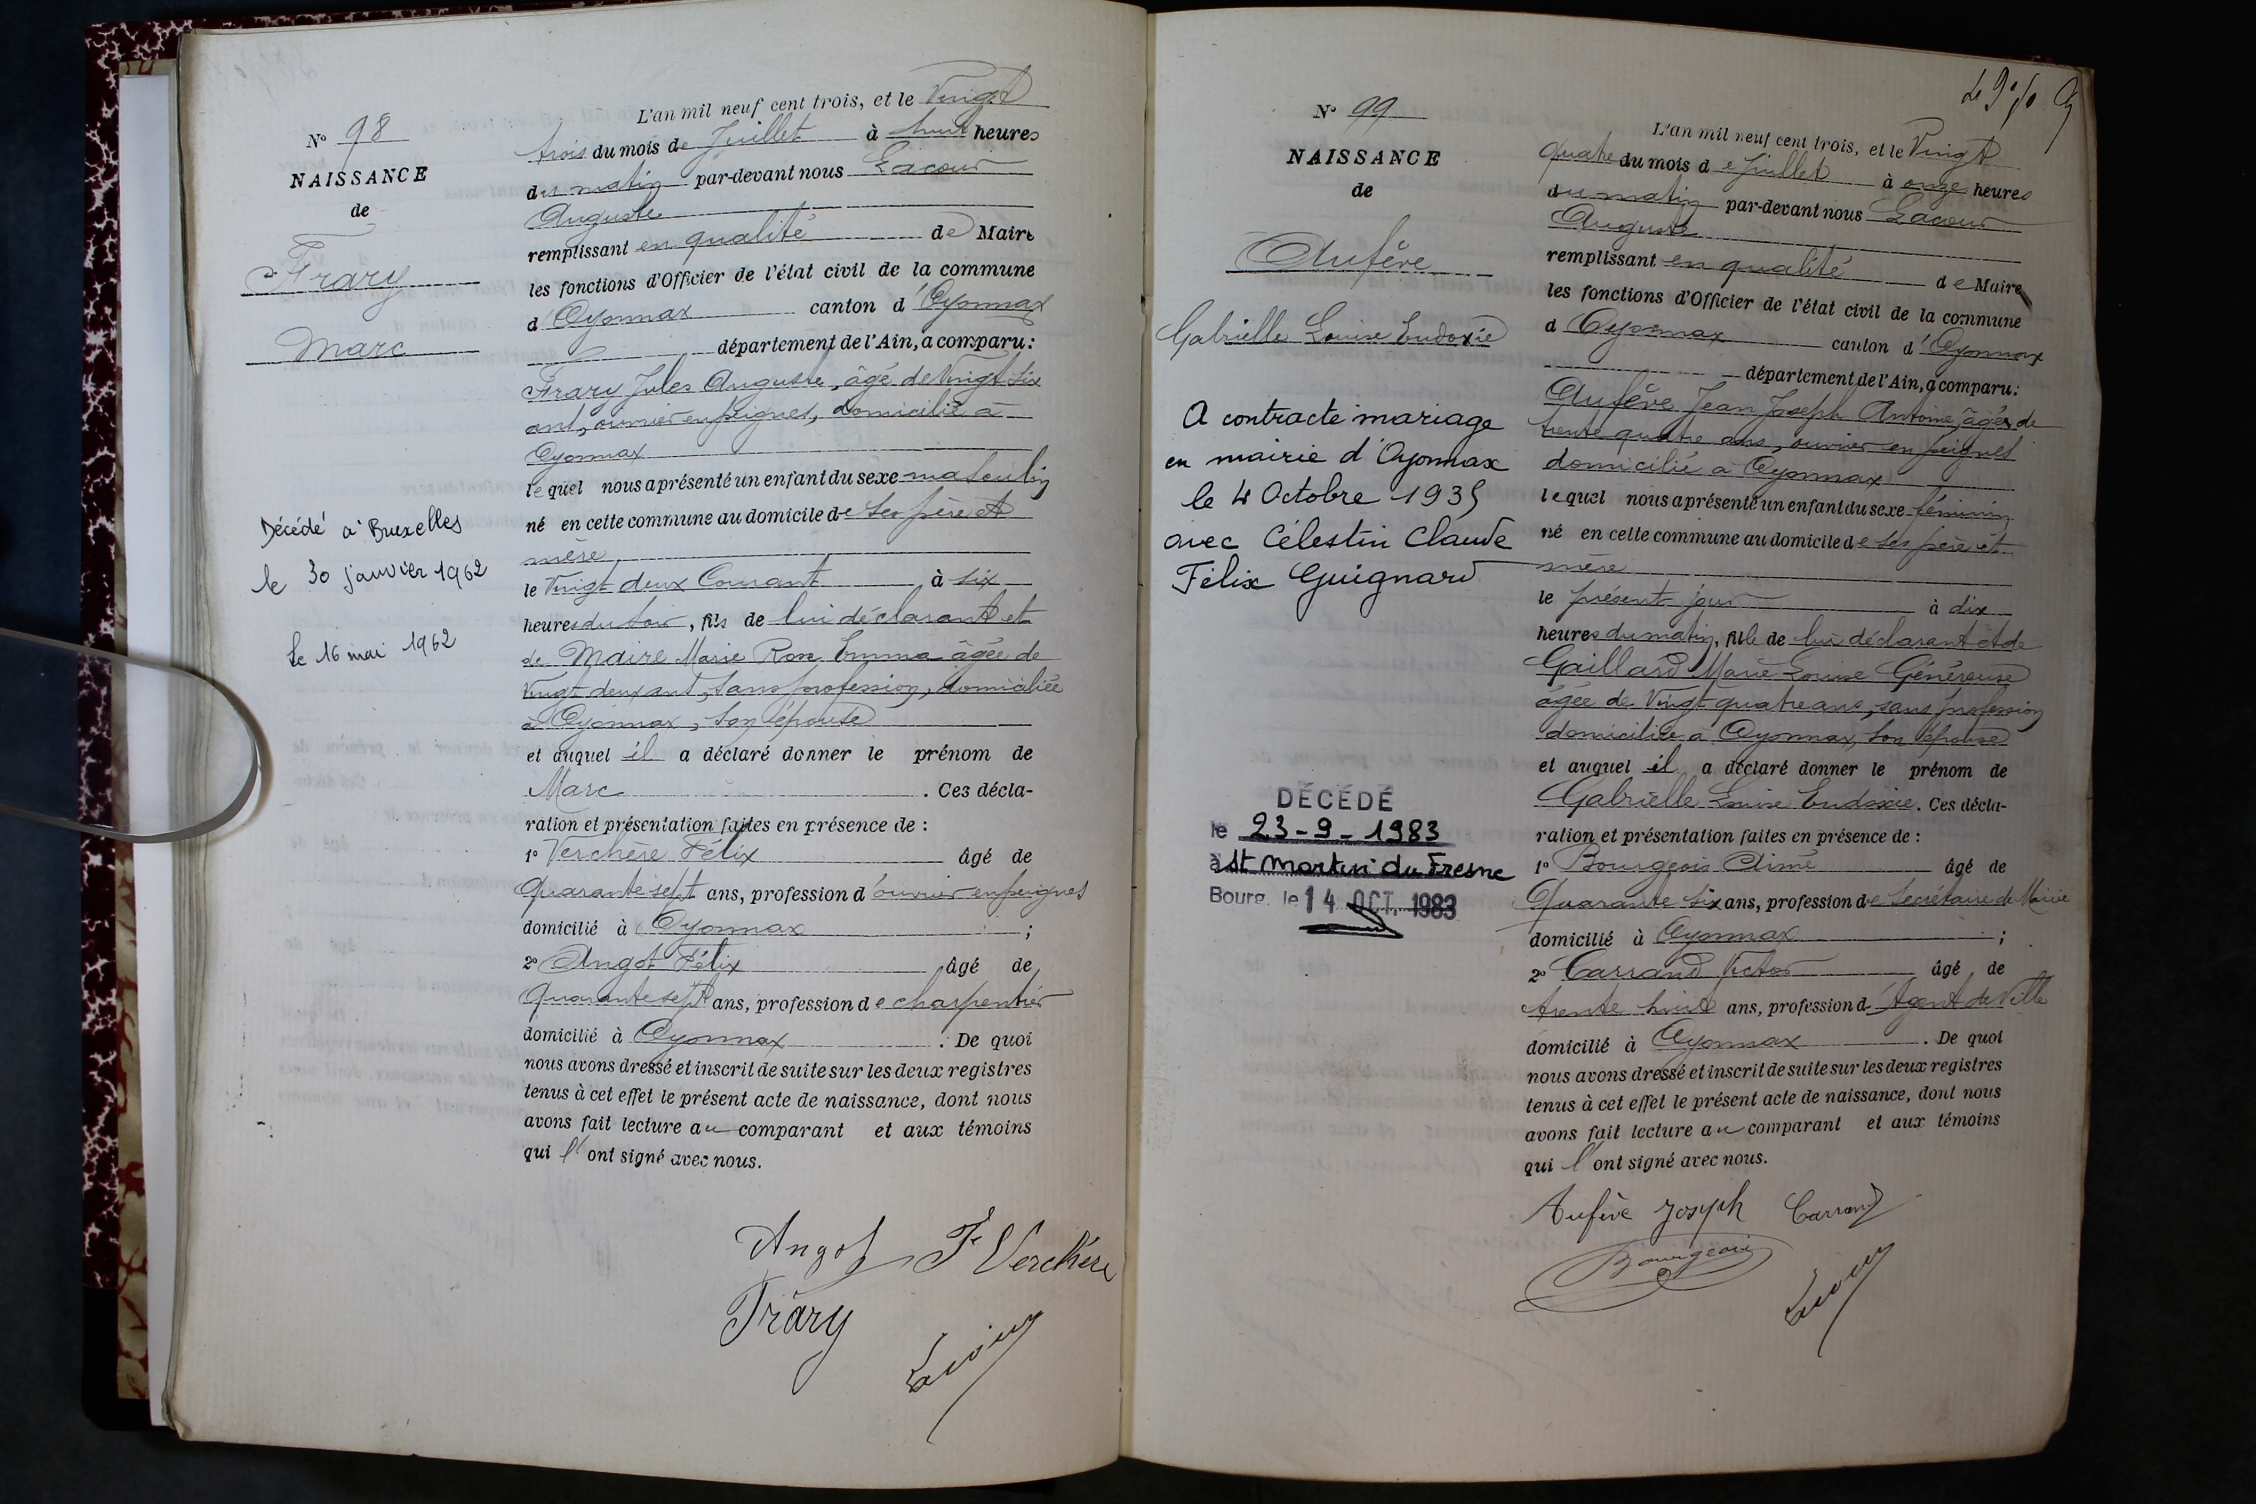 N° 98
NAISSANCE
de
Frary
Marc
Décédé à Bruxelles
le 30 janvier 1962
Le 16 mai 1962
L'an mil neuf cent trois, et le Vingt
trois du mois de Juillet à huit heures
du matin par-devant nous Lacour
Auguste
remplissant en qualité de Maire
les fonctions d'Officier de l'état civil de la commune
d'Oyonnax canton d'Oyonnax
département de l'Ain, a comparu :
Frary Jules Auguste, âgé de Vingt six
ans, ouvrier en peignes, domicilié à
Oyonnax
lequel nous a présenté un enfant du sexe masculin
né en cette commune au domicile de ses père et
mère
le Vingt deux Courant à six
heures du soir, fils de lui déclarant et
de Maire Marie Rose Emma âgée de
Vingt deux ans, sans profession, domiciliée
à Oyonnax, son épouse
et auquel il a déclaré donner le prénom de
Marc. Ces décla-
ration et présentation faites en présence de :
1° Verchère Félix âgé de
Quarante sept ans, profession d'ouvrier en peignes
domicilié à Oyonnax ;
2° Angot Félix âgé de
Quarante sept ans, profession de charpentier
domicilié à Oyonnax. De quoi
nous avons dressé et inscrit de suite sur les deux registres
tenus à cet effet le présent acte de naissance, dont nous
avons fait lecture au comparant et aux témoins
qui l'ont signé avec nous.
Angot F Verchère
Frary
Lacour
N° 99
NAISSANCE
de
Aufève
Gabrielle Louise Eudoxie
A contracté mariage
en mairie d'Oyonnax
le 4 Octobre 1935
avec Célestin Claude
Félix Guignard
DÉCÉDÉ
le 23-9-1983
à St Martin du Fresne
Bourg, le 14 OCT. 1983
L'an mil neuf cent trois, et le Vingt
quatre du mois de Juillet à onze heures
du matin par-devant nous Lacour
Auguste
remplissant en qualité de Maire
les fonctions d'Officier de l'état civil de la commune
d Oyonnax canton d'Oyonnax
département de l'Ain, a comparu :
Aufève Jean Joseph Antoine, âgé de
trente quatre ans, ouvrier en peignes
domicilié à Oyonnax
lequel nous a présenté un enfant du sexe féminin
né en cette commune au domicile de ses père et
mère
le présent jour à dix
heures du matin, fille de lui déclarant et de
Gaillard Marie Louise Généreuse
âgée de Vingt quatre ans, sans profession
domiciliée à Oyonnax, son épouse
et auquel il a déclaré donner le prénom de
Gabrielle Louise Eudoxie. Ces décla-
ration et présentation faites en présence de :
1° Bourgeois Aimé âgé de
Quarante six ans, profession de Secrétaire de Mairie
domicilié à Oyonnax ;
2° Carrand Victor âgé de
trente huit ans, profession d'Agent de Ville
domicilié à Oyonnax. De quoi
nous avons dressé et inscrit de suite sur les deux registres
tenus à cet effet le présent acte de naissance, dont nous
avons fait lecture au comparant et aux témoins
qui l'ont signé avec nous.
Aufève Joseph Carrand
Bourgeois
Lacour